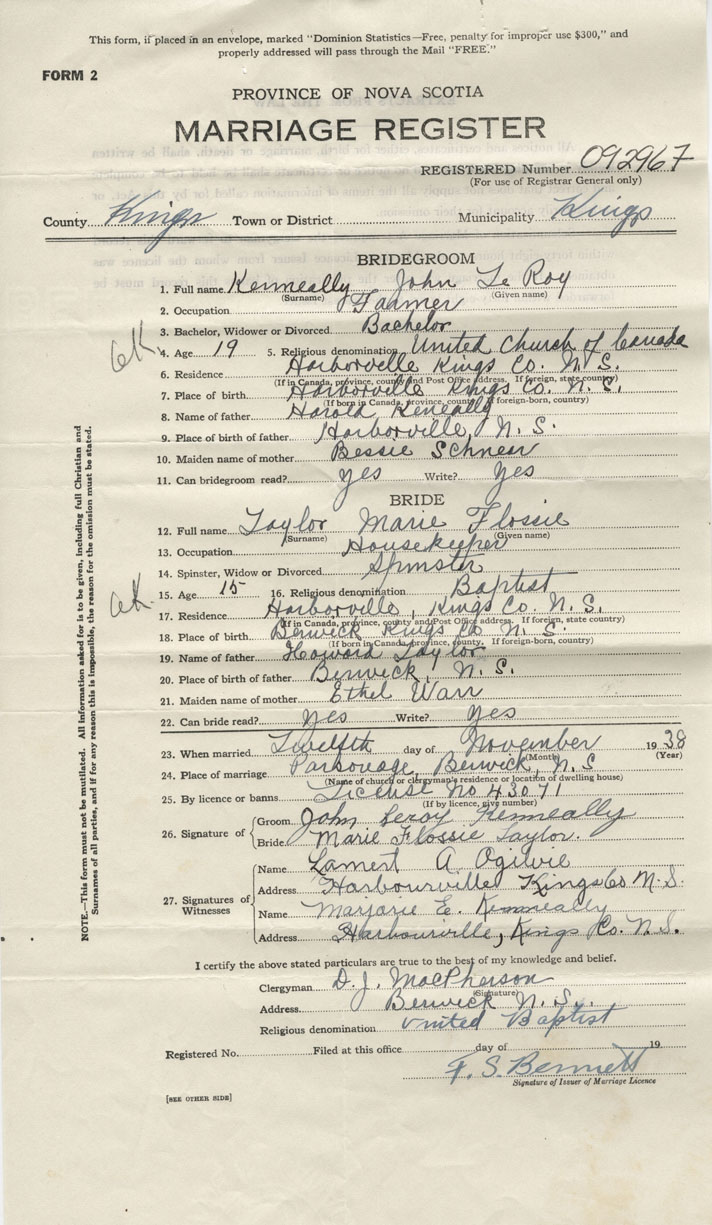 This form, if placed in an envelope, marked "Dominion Statistics—Free, penalty for improper use $300," and
properly addressed will pass through the Mail "FREE."
FORM 2
PROVINCE OF NOVA SCOTIA
MARRIAGE REGISTER
REGISTERED Number 092967
(For use of Registrar General only)
County Kings Town or District Municipality Kings
BRIDEGROOM
1. Full name Kenneally John Le Roy
(Surname) (Given name)
2. Occupation Farmer
3. Bachelor, Widower or Divorced Bachelor
OK.
4. Age 19 5. Religious denomination United Church of Canada
6. Residence Harborville Kings Co. N. S.
(If in Canada, province, county and Post Office address. If foreign, state country)
7. Place of birth Harborville Kings Co. N. S.
(If born in Canada, province, county. If foreign-born, country)
8. Name of father Harold Keneally
9. Place of birth of father Harborville, N. S.
10. Maiden name of mother Bessie
11. Can bridegroom read? yes Write? yes
BRIDE
12. Full name Taylor Marie Flossie
(Surname) (Given name)
13. Occupation Housekeeper
14. Spinster, Widow or Divorced Spinster
15. Age 15 16. Religious denomination Baptist
OK.
17. Residence Harborville, Kings Co. N. S.
(If in Canada, province, county and Post Office address. If foreign, state country)
18. Place of birth Berwick Kings Co N. S.
(If born in Canada, province, county. If foreign-born, country)
19. Name of father Howard Taylor
20. Place of birth of father Berwick, N. S.
21. Maiden name of mother Ethel Warr
22. Can bride read? Yes Write? Yes
23. When married Twelfth day of November 1938
(Month) (Year)
24. Place of marriage Parsonage, Berwick, N. S
(Name of church or clergyman's residence or location of dwelling house)
25. By licence or banns License No 43071
(If by licence, give number)
26. Signature of
Groom John Leroy Kenneally
Bride Marie Flossie Taylor.
27. Signatures of Witnesses
Name Lamert A. Ogilvie
Address Harbourville Kings Co N. S.
Name Marjorie E. Kenneally
Address Harbourville, Kings Co. N. S.
I certify the above stated particulars are true to the best of my knowledge and belief.
Clergyman D. J. MacPherson
(Signature)
Address Berwick N. S.
Religious denomination United Baptist
Registered No. Filed at this office day of 19
F. S. Bennett
Signature of Issuer of Marriage Licence
[SEE OTHER SIDE]
NOTE.—This form must not be mutilated. All information asked for is to be given, including full Christian and
Surnames of all parties, and if for any reason this is impossible, the reason for the omission must be stated.